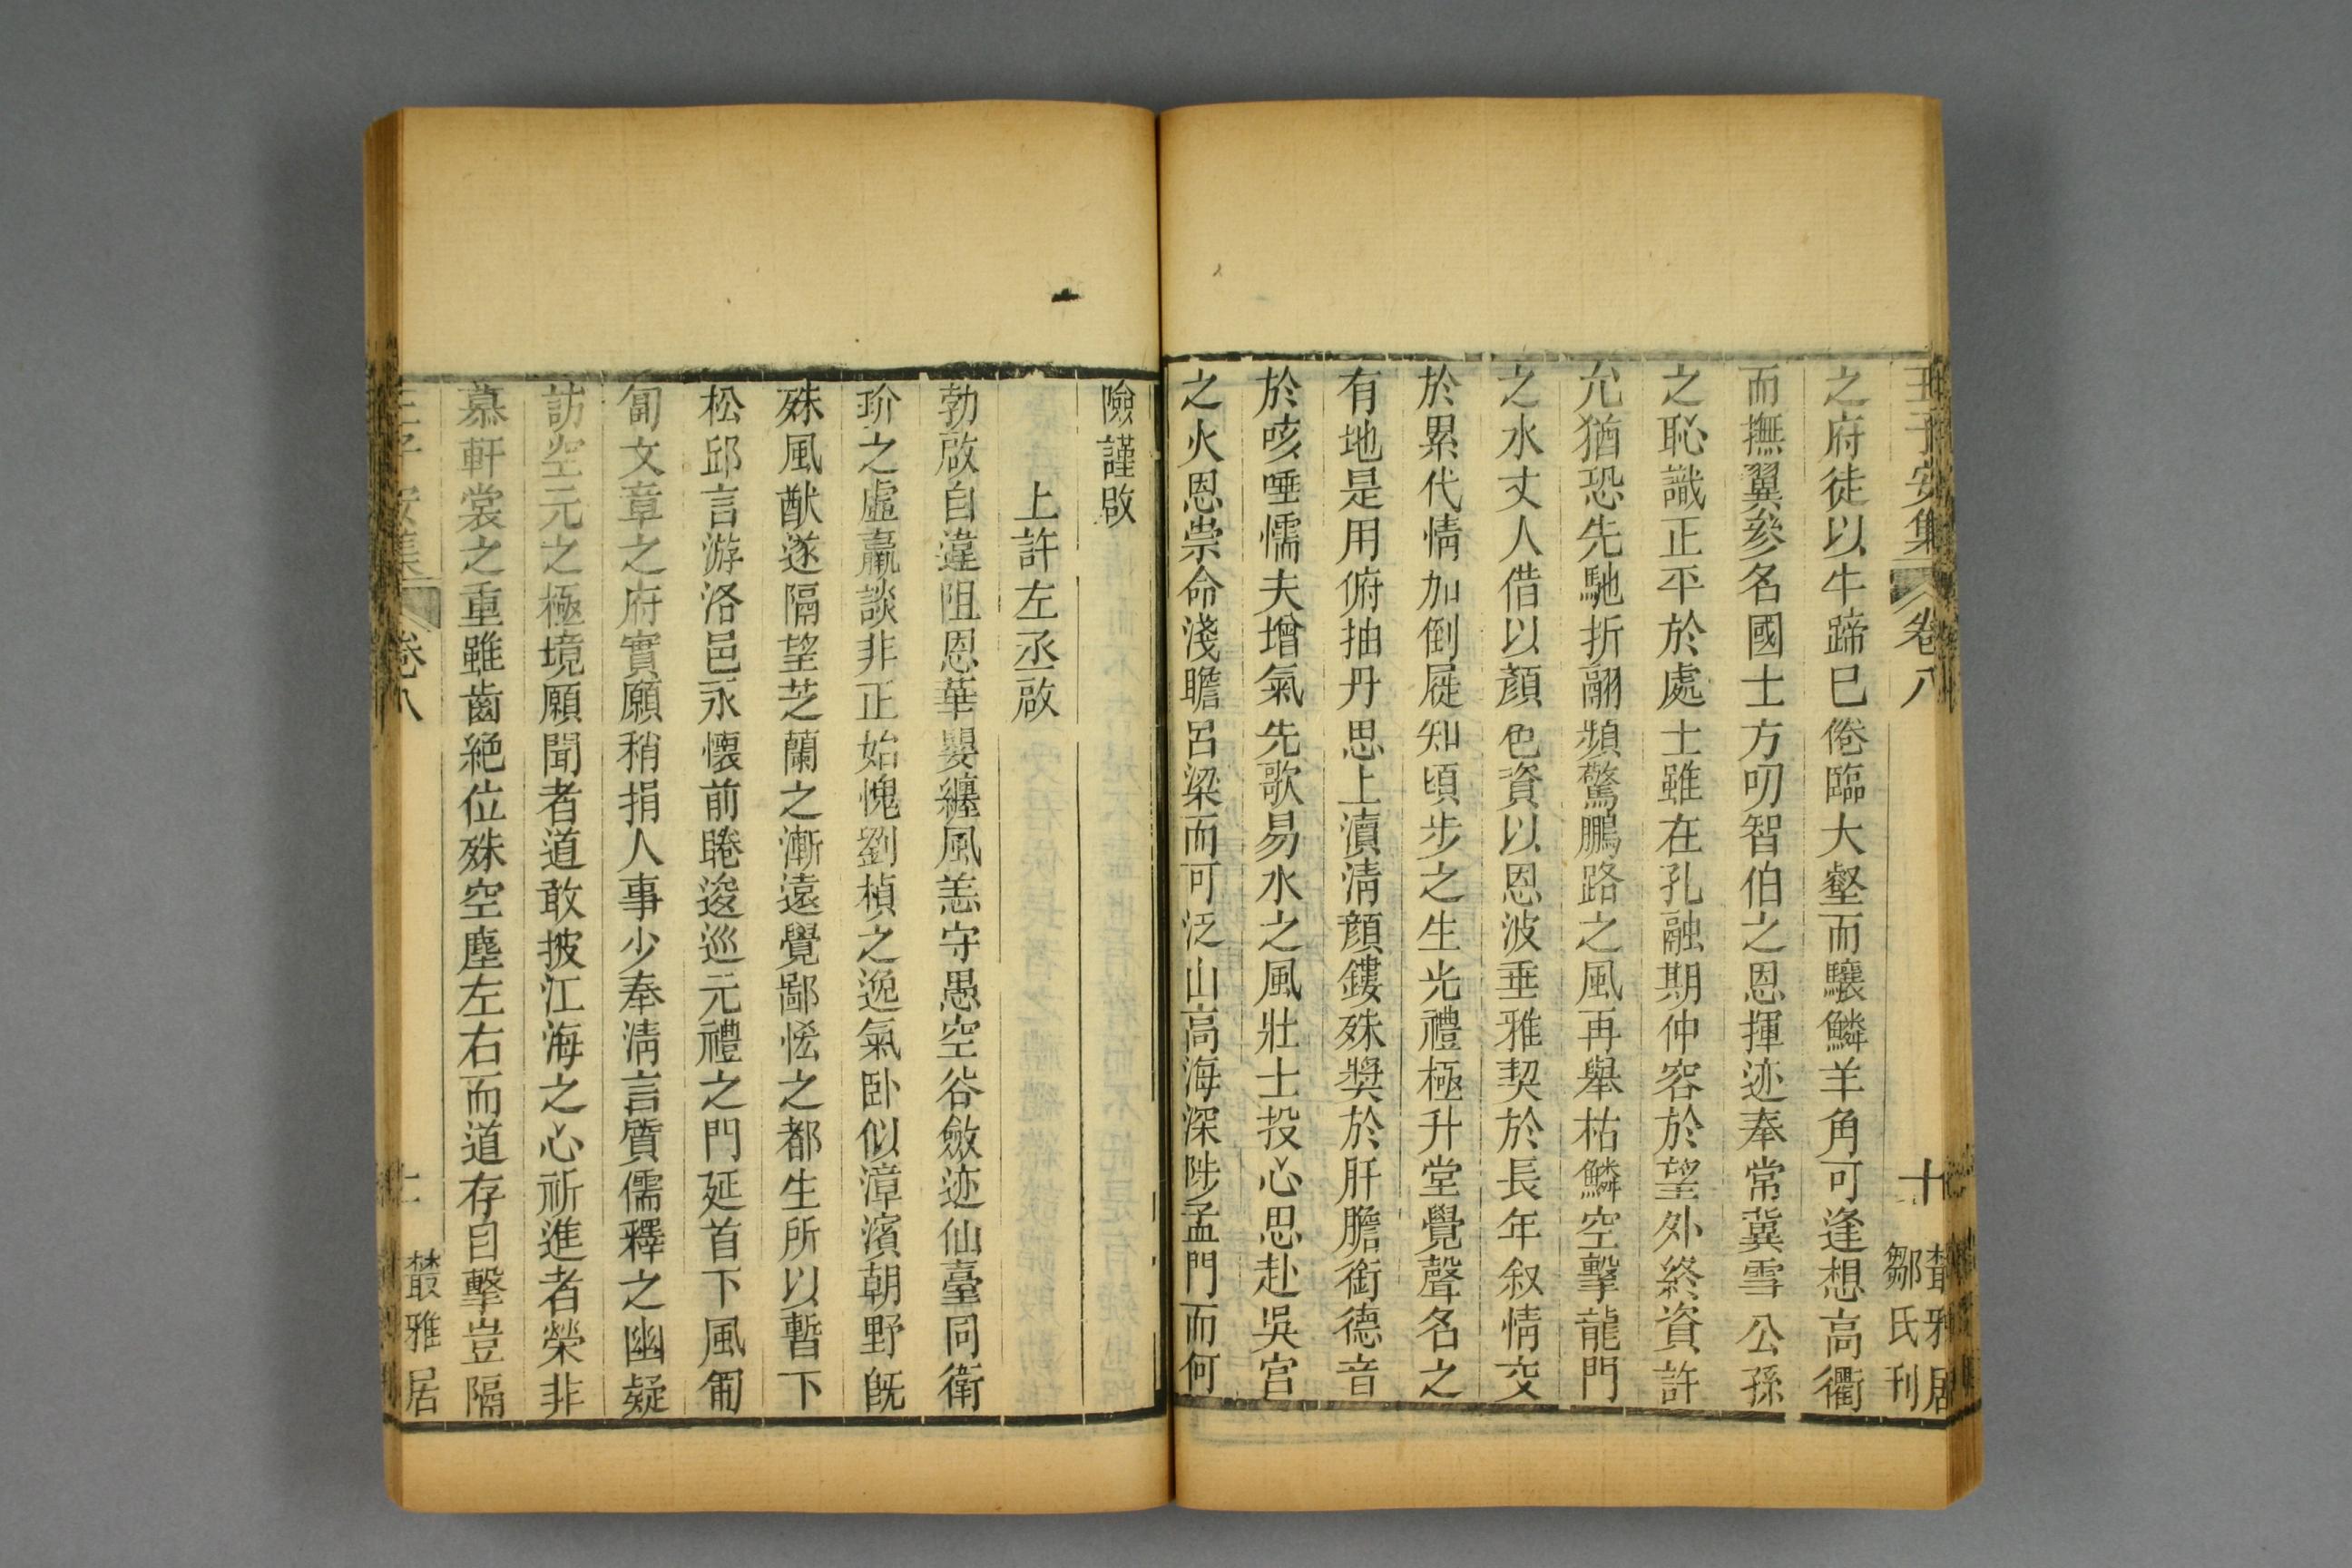 王子安集 卷八 十 叢雅居 鄒氏刊
之府徒以牛蹄巳倦臨大壑而驤鱗羊角可逢想高衢
而撫翼參名國士方叨智伯之恩揮迹奉常冀雪公孫
之恥識正平於處士雖在孔融期仲容於望外終資許
允猶恐先馳折翮頻驚鵬路之風再舉枯鱗空擊龍門
之水丈人借以顏色資以恩波垂雅契於長年叙情交
於累代情加倒屣知頃步之生光禮極升堂覺聲名之
有地是用俯抽丹思上瀆清顏鏤殊獎於肝膽銜德音
於咳唾懦夫增氣先歌易水之風壯士投心思赴吳宮
之火恩崇命淺瞻呂梁而可泛山高海深陟孟門而何
險謹啟
上許左丞啟
勃啟自違阻恩華嬰纏風恙守愚空谷斂迹仙臺同衛
玠之虛羸談非正始愧劉楨之逸氣卧似漳濱朝野旣
殊風猷遂隔望芝蘭之漸遠覺鄙恡之都生所以暫下
松邱言游洛邑永懷前睠逡巡元禮之門延首下風匍
匐文章之府實願稍捐人事少奉清言質儒釋之幽疑
訪空元之極境願聞者道敢披江海之心祈進者榮非
慕軒裳之重雖齒絕位殊空塵左右而道存目擊豈隔
王子安集 卷八 十一 叢雅居